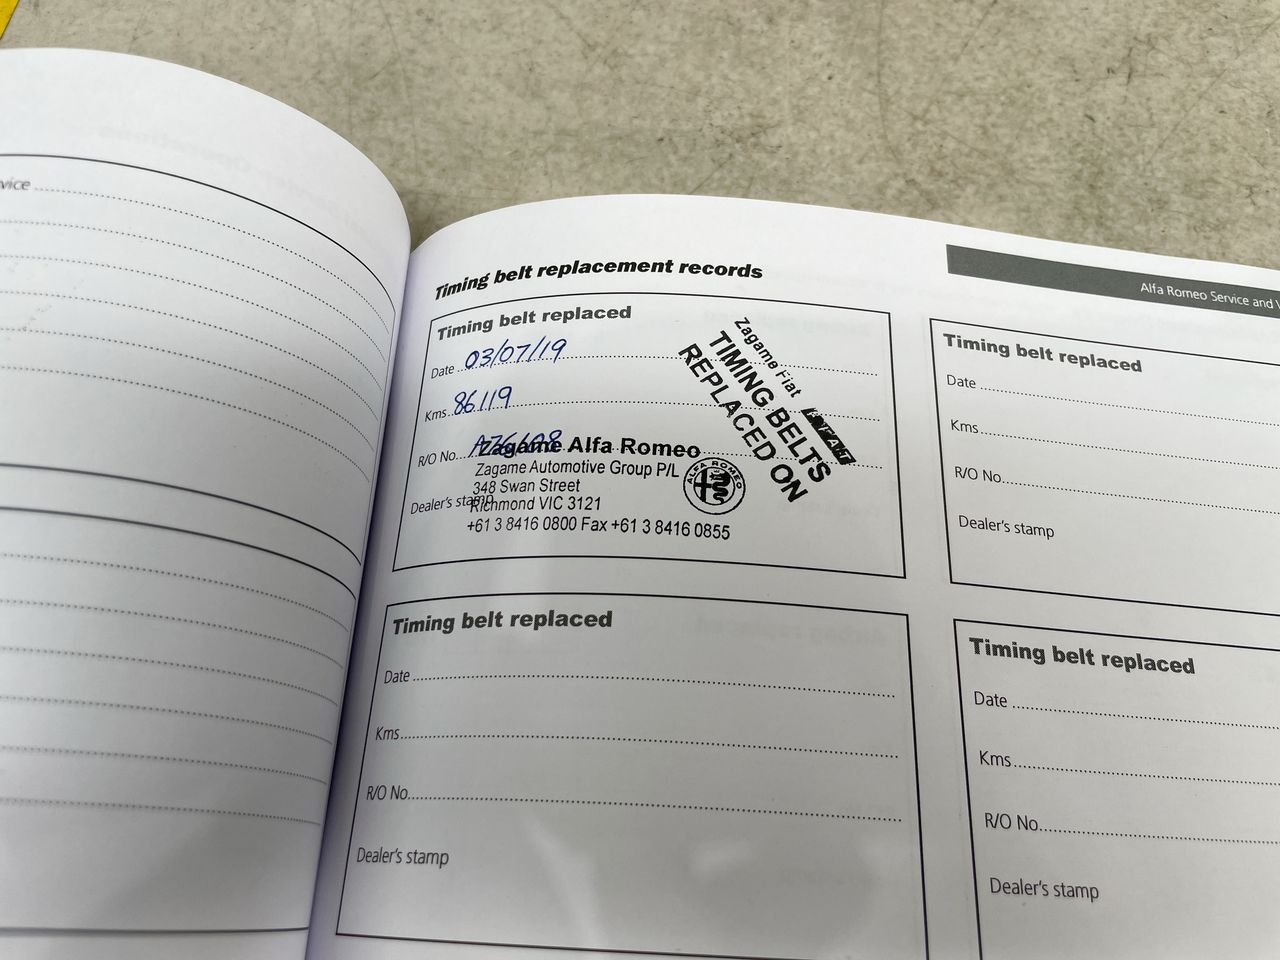 vice
Timing belt replacement records
Alfa Romeo Service and
Timing belt replaced
Date 03/07/19
Kms 86119
R/O No.
Zagame Alfa Romeo
Zagame Automotive Group P/L
348 Swan Street
Dealer's stamp
Richmond VIC 3121
+61 3 8416 0800 Fax +61 3 8416 0855
ALFA ROMEO
Zagame Fiat
FIAT
TIMING BELTS
REPLACED ON
Timing belt replaced
Date
Kms
R/O No.
Dealer's stamp
Timing belt replaced
Date
Kms
R/O No.
Dealer's stamp
Timing belt replaced
Date
Kms
R/O No.
Dealer's stamp